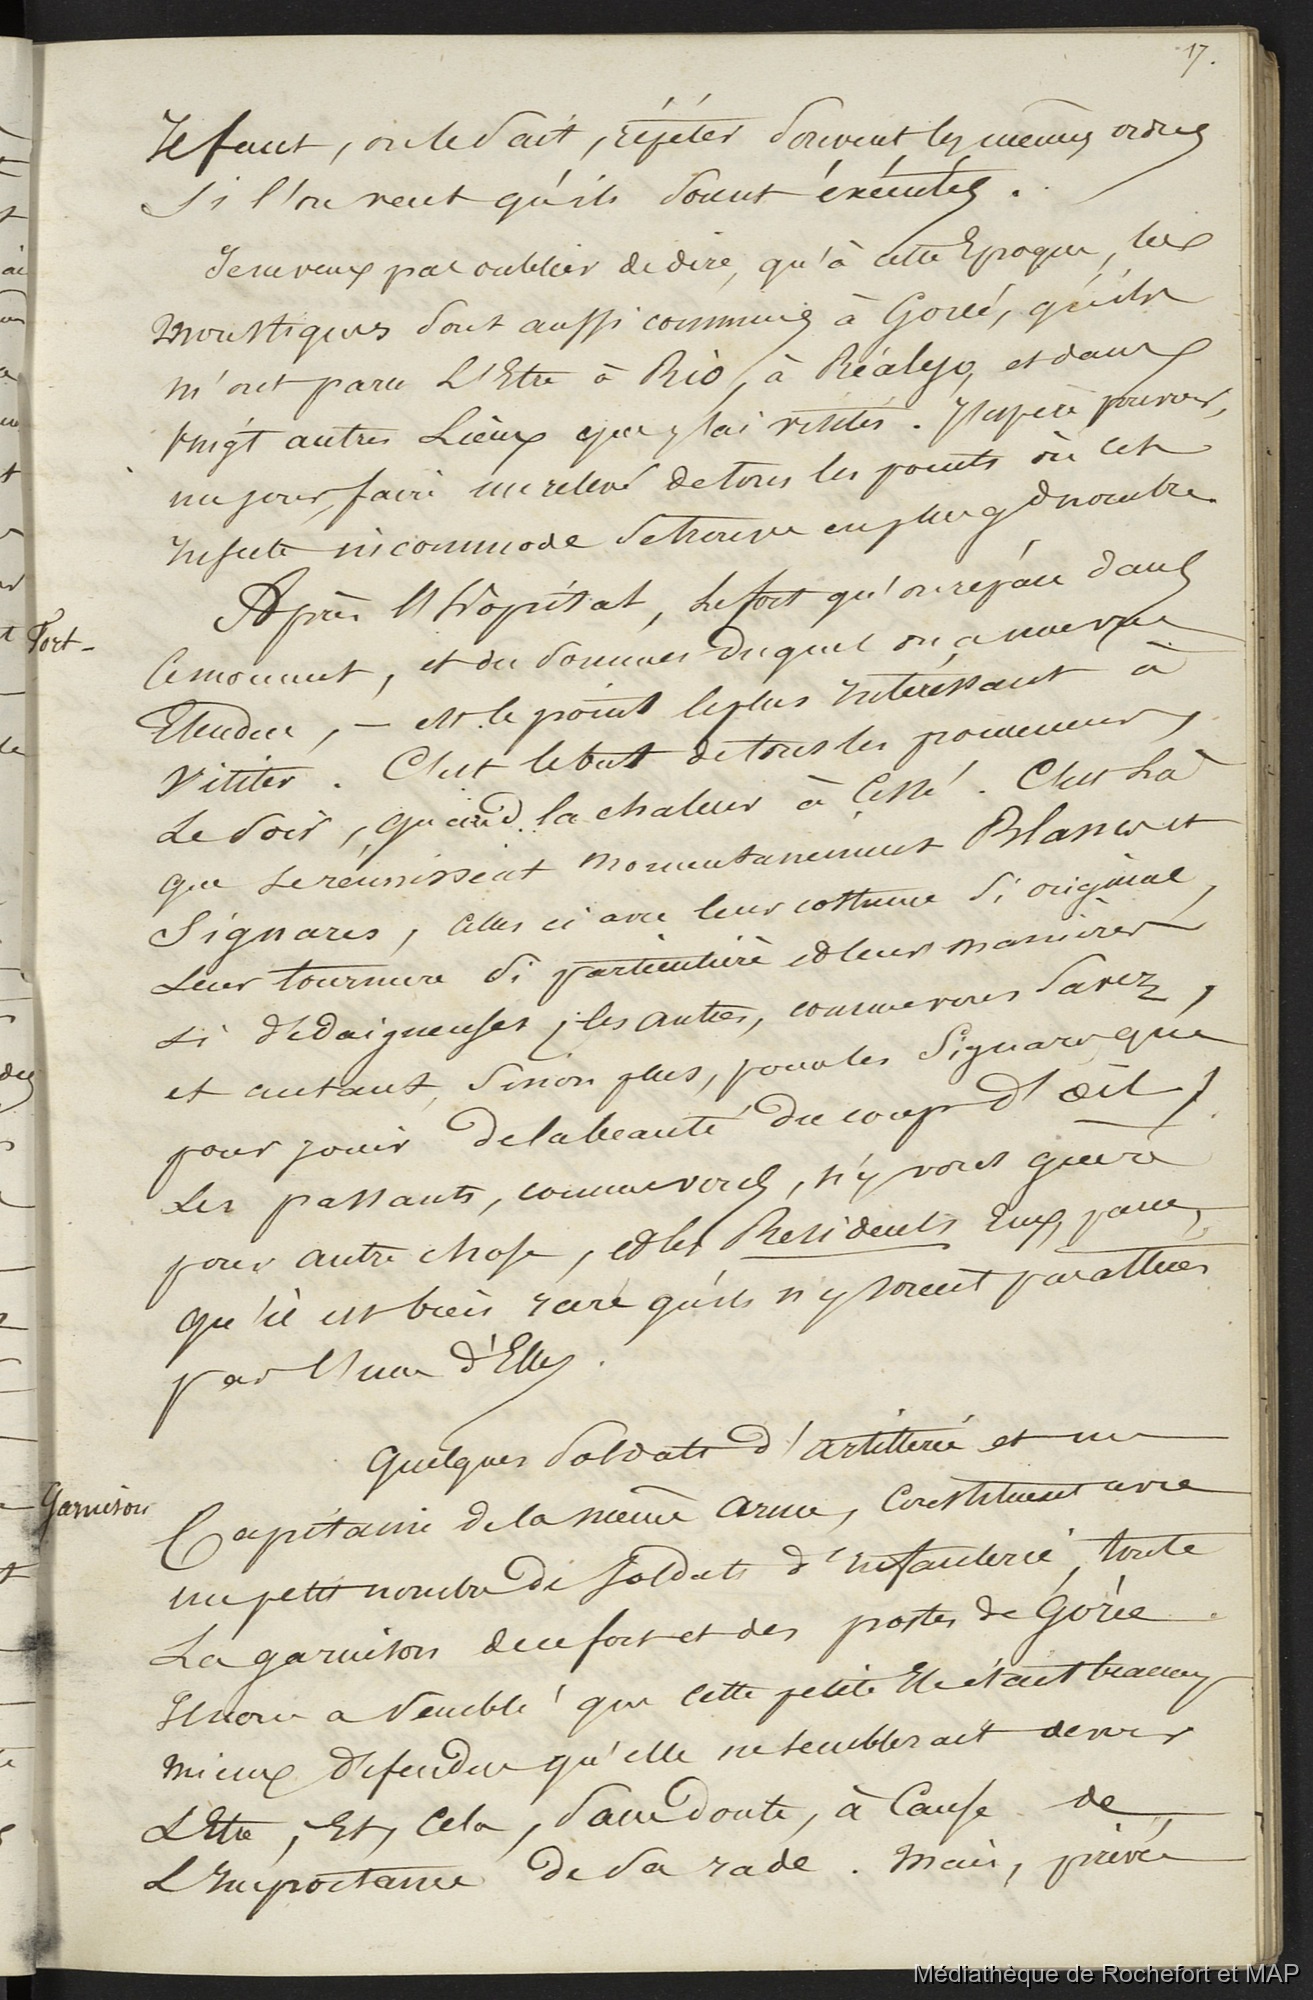 17.
Il faut, on le sait, répéter souvent les mêmes ordres
si l'on veut qu'ils soient éxécutés.
Je ne veux pas oublier de dire, qu'à cette Epoque, les
moustiques sont aussi communs à Gorée, qu'ils
m'ont paru L'Etre à Rio, à Réalejo, et dans
vingt autres Lieux que j'ai visités. J'espère pouvoir,
un jour, faire un relevé de tous les points où cet
Insecte incommode se trouve en plus gd nombre.
Fort-
Après l'hôpital, le fort qu'on répare dans
ce moment, et du sommet duquel on a une vue
Etendue, - est le point le plus intéressant à
visiter. C'est le but de tous les promeneurs,
Le soir, quand la chaleur à cessé. C'est Là
que se réunissent momentanément Blancs et
Signares, celles ci avec leur costume si original,
Leur tournure si particulière et leurs manières
si dédaigneuses; les autres, comme vous savez,
et autant, sinon plus, pour les Signares que
pour jouir de la beauté du coup d'œil;
Les passants, comme vous, n'y vont guère
pour autre chose, et les Résidents Eux, parce
qu'il est bien rare qu'ils n'y soient pas attirés
par l'une d'Elles.
Quelques soldats d'artillerie et un
Garnison
Capitaine de la même arme, constituent avec
un petit nombre de soldats d'infanterie, toute
La garnison de ce fort et des postes de Gorée.
Il nous a semblé que cette petite Ile était beaucoup
mieux défendue qu'elle ne semblerait devoir
L'Etre; Et, cela, sans doute, à Cause de
L'Importance de sa rade. Mais, privée
Médiathèque de Rochefort et MAP